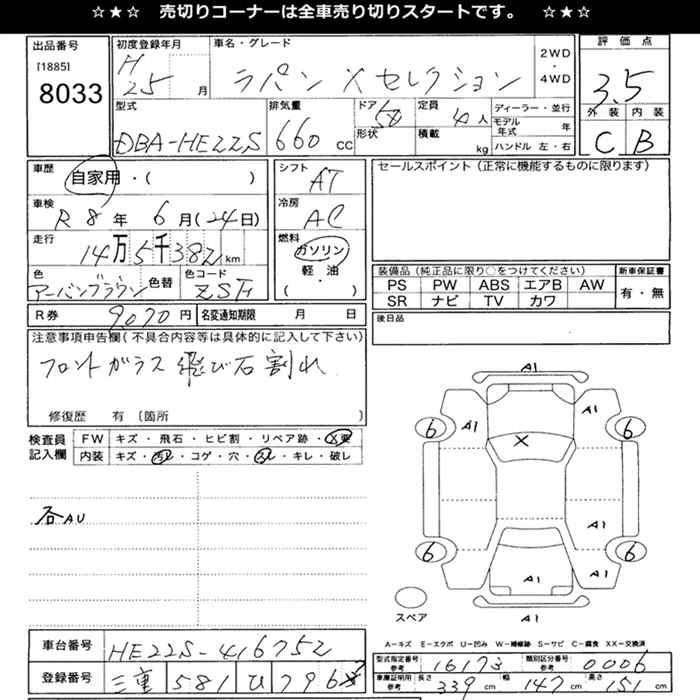 ☆★☆ 売切りコーナーは全車売り切りスタートです。 ☆★☆
出品番号
[1885]
8033
初度登録年月
H
25 月
車名・グレード
ラパン Xセレクション
2WD
・
4WD
評価点
3.5
外装 内装
C B
型式
DBA-HE22S
排気量
660 cc
ドア
5d
形状
定員
4 人
積載
kg
ディーラー・並行
モデル年式 年
ハンドル 左・右
車歴
自家用・( )
シフト
AT
セールスポイント(正常に機能するものに限ります)
車検
R 8 年 6 月(24日)
冷房
AC
走行
14万5千382km
燃料
ガソリン
軽・油
( )
色
アーバンブラウン
色替
色コード
ZSF
装備品(純正品に限り○をつけてください)
PS PW ABS エアB AW
SR ナビ TV カワ
新車保証書
有・無
R券 9070円
名変通知期限 月 日
後日品
注意事項申告欄(不具合内容等は具体的に記入して下さい)
フロントガラス 飛び石割れ
修復歴 有 (箇所 )
検査員
記入欄
FW キズ・飛石・ヒビ割・リペア跡・X要
内装 キズ・汚レ・コゲ・穴・スレ・キレ・破レ
各AU
A1
6 A1 A1 6
X
A1
6 A1 A1 6
スペア A1
A-キズ E-エクボ U-凹み W-補修跡 S-サビ C-腐食 XX-交換済
車台番号 HE22S-416752
登録番号 三重 581 ひ 796
型式指定番号
参考
16173
類別区分番号
参考
0006
車庫証明用
参考
長さ 339 cm 幅 147 cm 高さ 151 cm